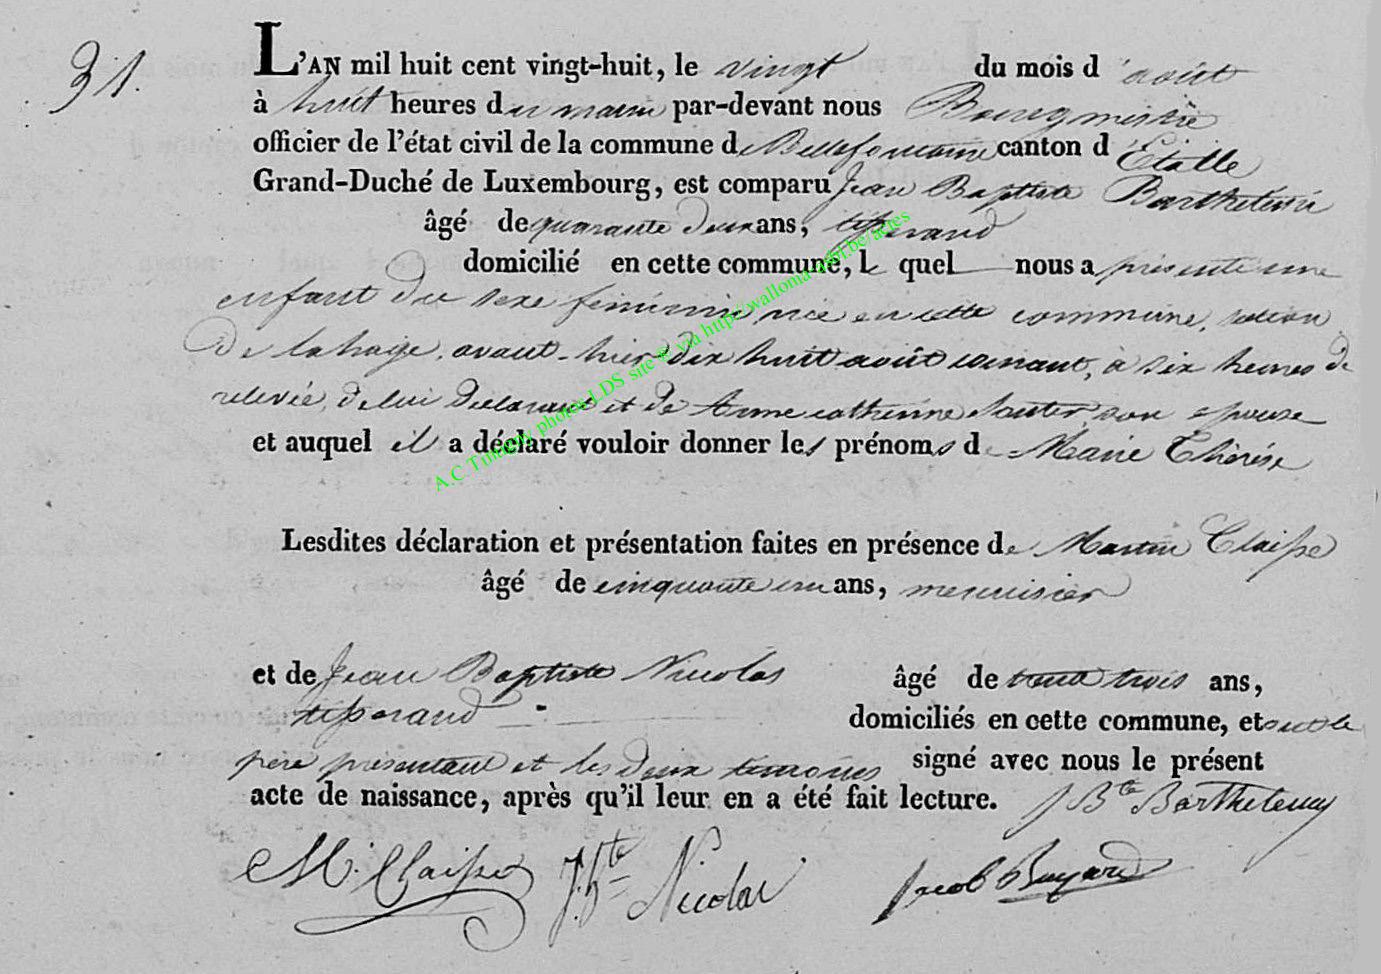 31.
L'AN mil huit cent vingt-huit, le vingt du mois d'août
à huit heures du matin par-devant nous Bourgmestre
officier de l'état civil de la commune de Bellefontaine canton d'Etalle
Grand-Duché de Luxembourg, est comparu Jean Baptiste Barthelemi
âgé de quarante deux ans, tisserand
domicilié en cette commune, le quel nous a présenté une
enfant du sexe féminin née en cette commune, section
de lahage, avant-hier dix huit août courant, à six heures de
relevée, de lui déclarant et de Anne catherine Sauter son epouse
et auquel il a déclaré vouloir donner les prénoms de Marie Thérèse
Lesdites déclaration et présentation faites en présence de Martin Claisse
âgé de cinquante un ans, menuisier
et de Jean Baptiste Nicolas âgé de trente trois ans,
tisserand domiciliés en cette commune, et ont le
père présentant et les deux temoins signé avec nous le présent
acte de naissance, après qu'il leur en a été fait lecture. J Bte Barthelemy
M. Claisse J. Bte Nicolas Jacob Buyard
A.C Tintigny photos LDS site © via http://walloma-asbl.be/actes